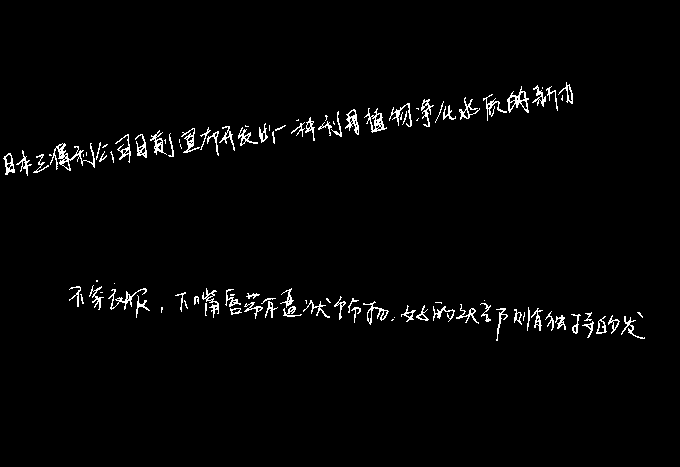 日本三得利公司目前宣布开发出一种利用植物净化水质的新办
不穿衣服，下嘴唇带有盘状饰物，女的头部则有独特的发